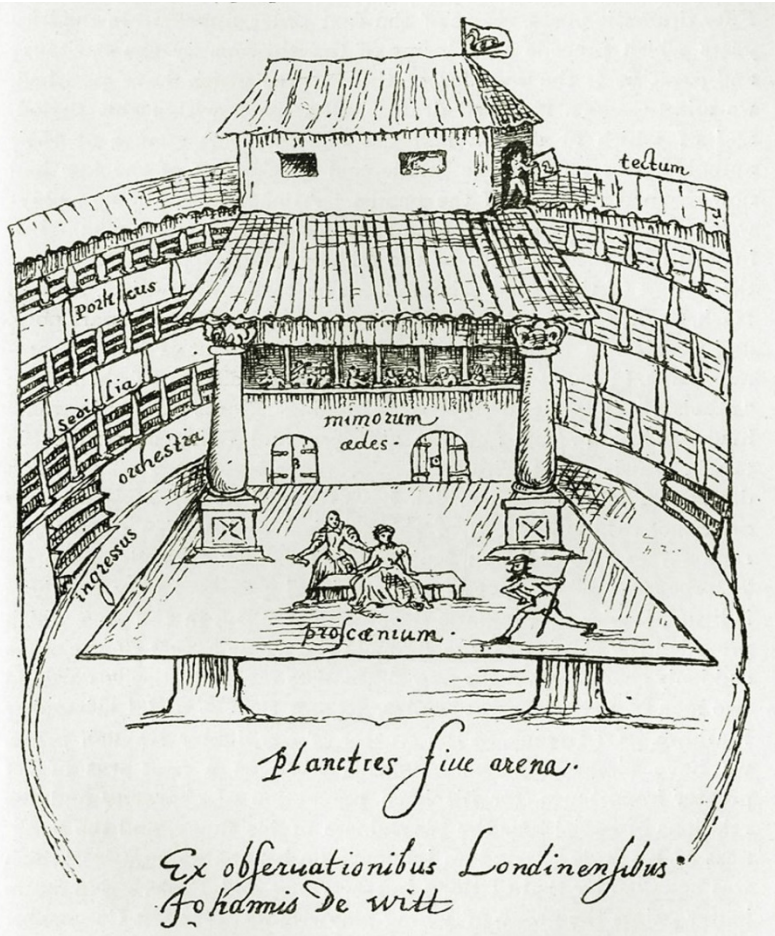 tectum
porticus
sedilia
orchestra
ingressus
mimorum
ædes.
proscænium.
planities siue arena.
Ex obseruationibus Londinensibus
Johannis De Witt